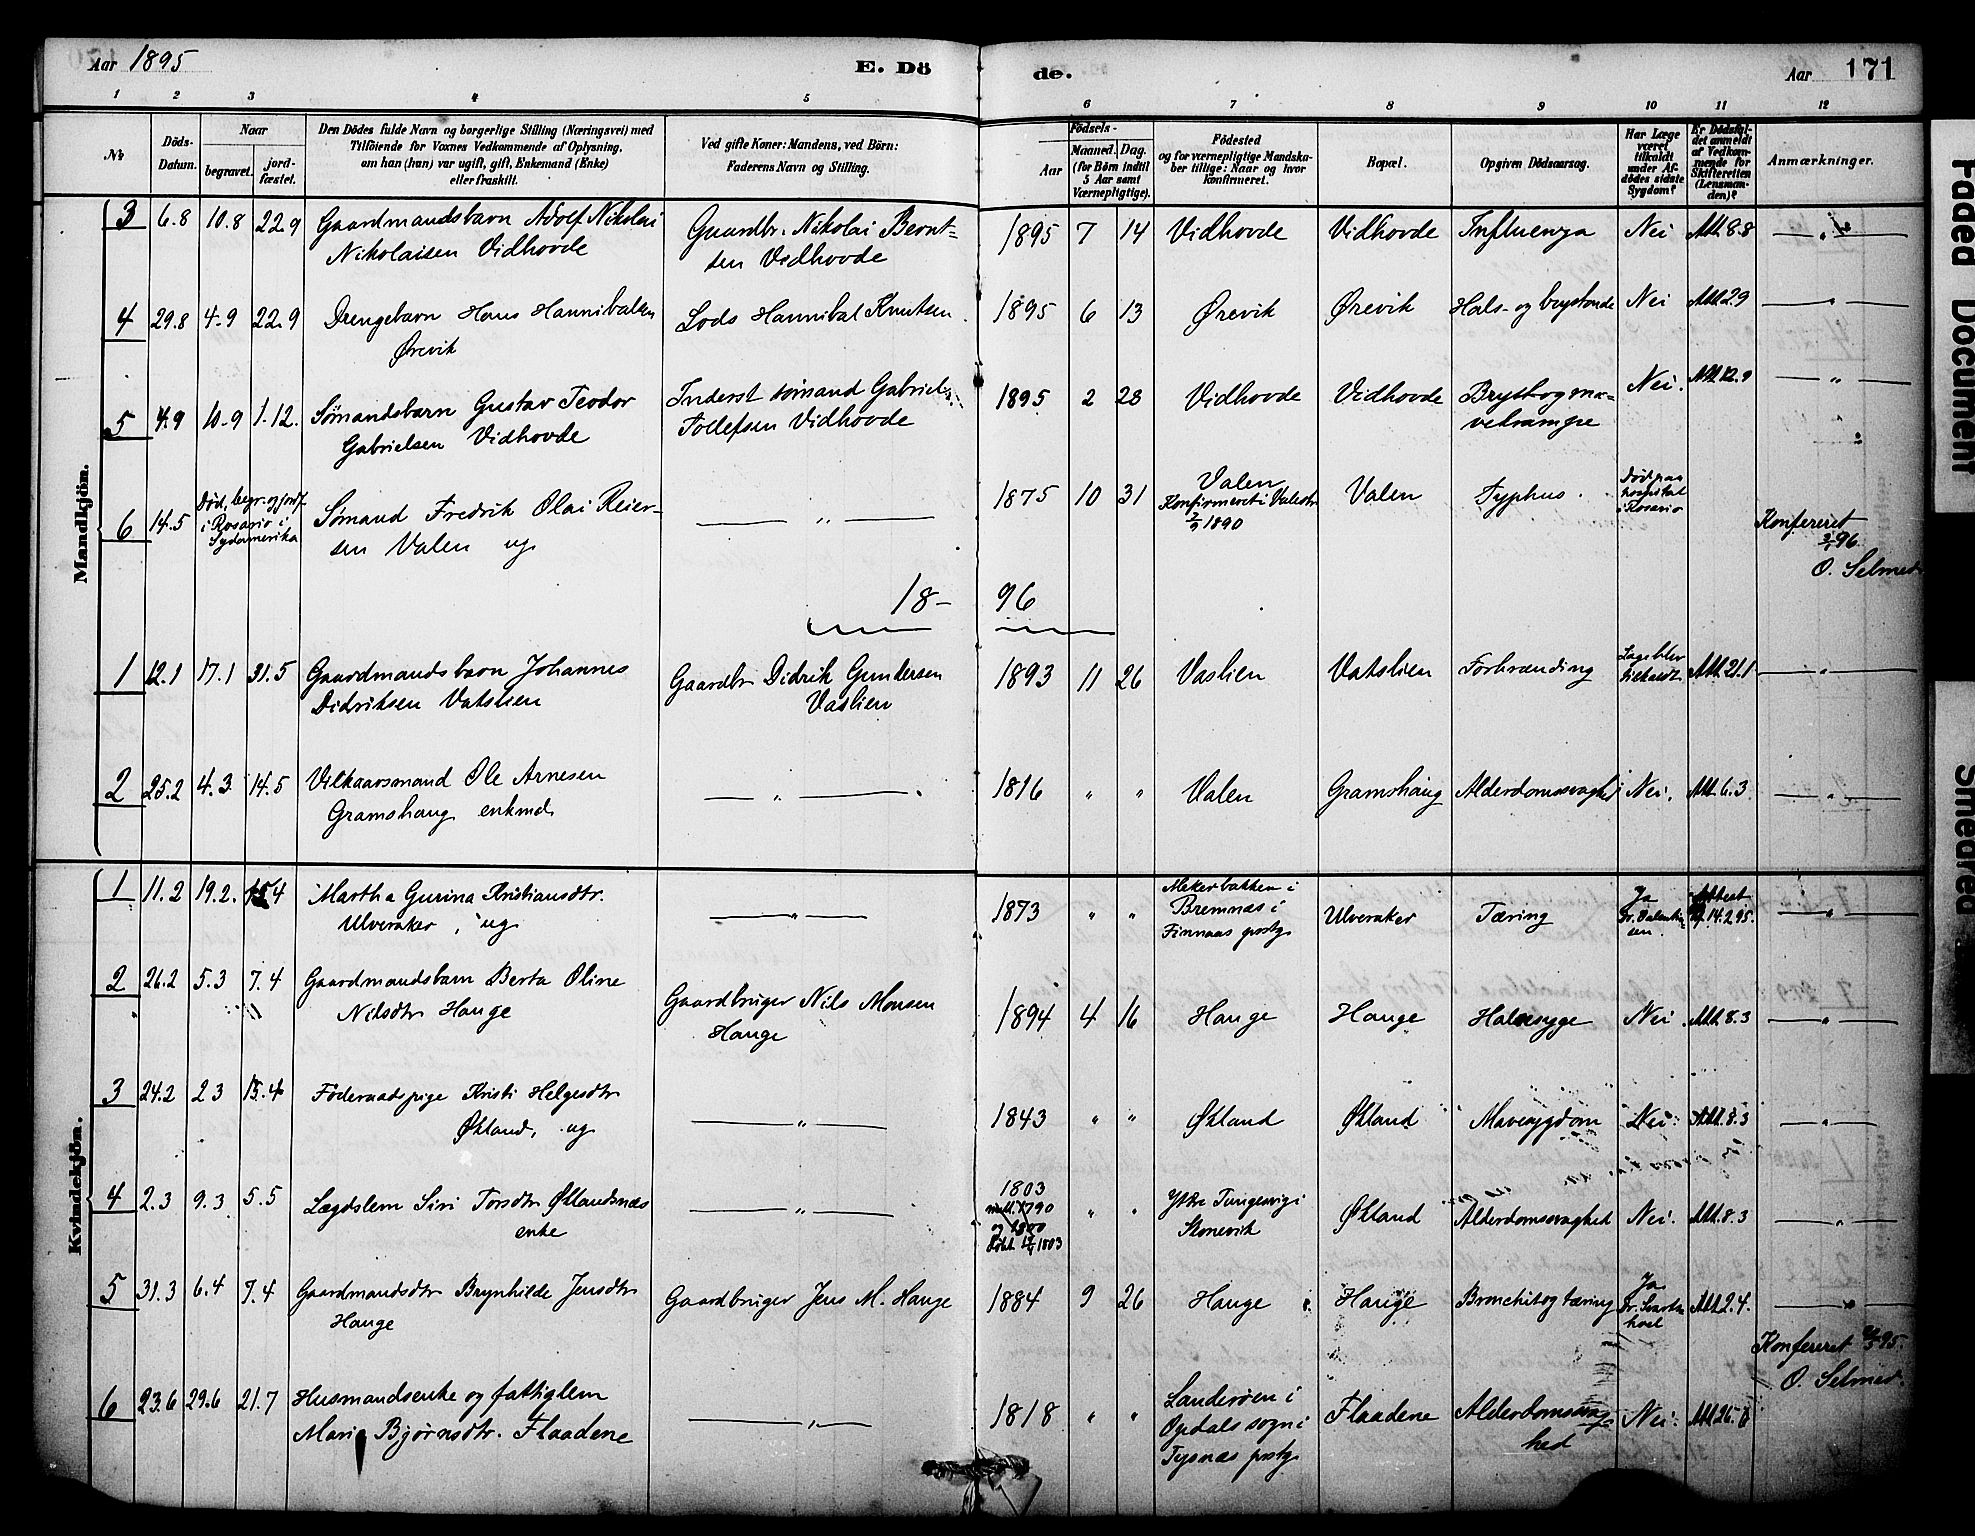 Aar 1895 E. Dö de. Aar 171
1 2 3 4 5 6 7 8 9 10 11 12
No. Döds-Datum. Naar begravet. jord-fæstet.
Den Dödes fulde Navn og borgerlige Stilling (Næringsvei) med
Tilföiende for Voxnes Vedkommende af Oplysning,
om han (hun) var ugift, gift, Enkemand (Enke)
eller fraskilt.
Ved gifte Koner: Mandens, ved Börn:
Faderens Navn og Stilling.
Födsels-
Aar Maaned. Dag.
(for Börn indtil
5 Aar samt
Værnepligtige).
Födested
og for værnepligtige Mandska-
ber tillige: Naar og hvor
konfirmeret.
Bopæl.
Opgiven Dödsaarsag.
Har Læge
været
tilkaldt
under Af-
dödes sidste
Sygdom?
Er Dödsfal-
det anmeldt
af Vedkom-
mende for
Skifteretten
(Lensman-
den)?
Anmærkninger.
Mandkjön.
3 6.8 10.8 22.9 Gaardmandsbarn Adolf Nikolai Gaardbr. Nikolai Bernt= 1895 7 14 Vidhovde Vidhovde Influenza Nei Att. 8.8 — " —
Nikolaisen Vidhovde sen Vidhovde
4 29.8 4.9 22.9 Drengebarn Hans Hannibalsen Lods Hannibal Knutsen. 1895 6 13 Ørevik Ørevik Hals- og brystonde Nei Att. 2.9 — " —
Ørevik
5 4.9 10.9 1.12. Sømandsbarn Gustav Teodor Inderst sømand Gabriel 1895 2 28 Vidhovde Vidhovde Bryst og ma= Nei. Att. 12.9 — " —
Gabrielsen Vidhovde Tollefsen Vidhovde vekrampe
6 14.5 Död, begr. og jordf. Sømand Fredrik Olai Reier- — " — 1875 10 31 Valen Valen Typhus. Död paa
i Rosario i sen Valen ug Konfirmeret i Valestr. hospital
Sydamerika 1890 i Rosario
Konfereret
96
O. Selmer
18- 96
1 12.1 17.1 31.5 Gaardmandsbarn Johannes Gaardbr. Didrik Gundersen 1893 11 26 Vaslien Vatslien Forbrænding Læge blev Att. 21.1 — " —
Didriksen Vatslien Vaslien tilkaldt
2 25.2 4.3 14.5 Vilkaarsmand Ole Arnesen — " — 1816 " " Valen Gramshaug Alderdomssvaghed Nei. Att. 6.3 — " —
Gramshaug enkmd.
Kvindekjön.
1 11.2 19.2. 15.4 Martha Gurina Kristiansdtr. — " — 1873 " " Mekerbakken i Ulveraker Tæring Ja Attest — " —
Ulveraker, ug Bremnæs i Dr. 14.2 95.
Finnaas prstg.
2 26.2 5.3 7.4 Gaardmandsbarn Berta Oline Gaardbruger Nils Monsen 1894 4 16 Hauge Hauge Halssyge Nei Att. 8.3 — " —
Nilsdtr Hauge Hauge
3 24.2 2.3 15.4 Föderaadspige Kristi Helgesdtr — " — 1843 " " Økland Økland Mavesygdom Nei Att. 8.3 — " —
Økland, ug
4 2.3 9.3 5.5 Lægdslem Siri Torsdtr Øklandsnæs — " — 1803 " " Ytre Tungesvig i Økland Alderdomssvaghed Nei. Att. 8.3 — " —
enke mell. 1790 Skonevik
og 1800
Døbt 1803
5 31.3 6.4 7.4 Gaardmandsdtr Brynhilde Jensdtr Gaardbruger Jens M. Hauge 1884 9 26 Hauge Hauge Bronchit og tæring Ja Att. 2.4. — " —
Hauge Dr.
Konfereret 95.
O. Selmer.
6 23.6 29.6 21.7 Husmandsenke og fattiglem — " — 1818 " " Landerøen i Flaadene Alderdomssvag- Nei. Att. 26.6
Mari Bjørnsdtr. Flaadene Opdals sogn i hed
Tysnæs prstg.
Faded Document
Smeared